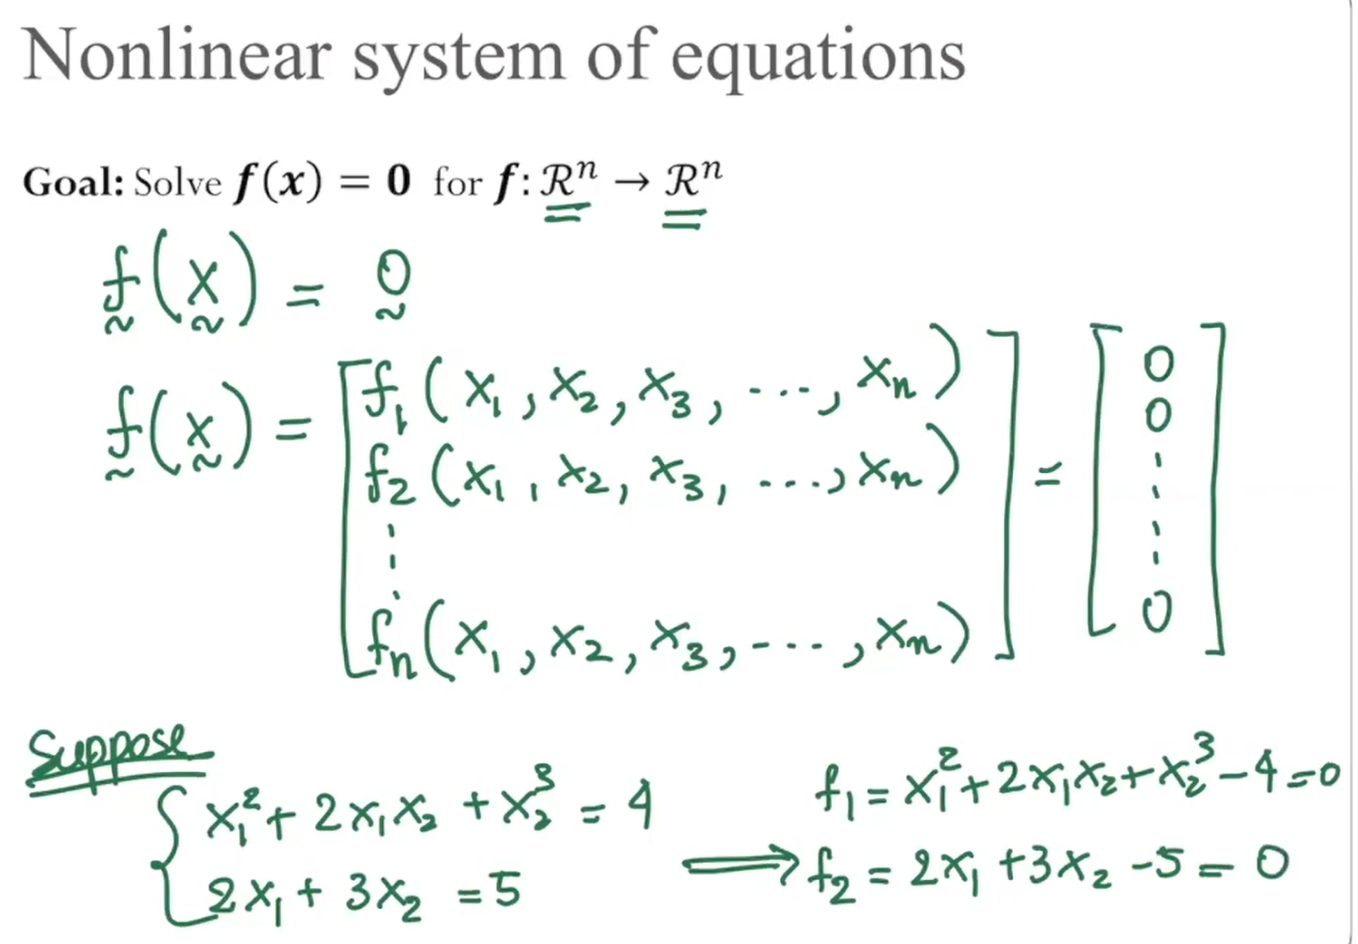 Nonlinear system of equations
Goal: Solve f(x) = 0 for f: ℛⁿ → ℛⁿ
f(x) = 0
f(x) = [f₁(x₁, x₂, x₃, ..., xₙ)] = [0]
f₂(x₁, x₂, x₃, ..., xₙ) 0
⋮ ⋮
fₙ(x₁, x₂, x₃, ..., xₙ) 0
Suppose
{ x₁² + 2x₁x₂ + x₂³ = 4
2x₁ + 3x₂ = 5
f₁ = x₁² + 2x₁x₂ + x₂³ - 4 = 0
⟹ f₂ = 2x₁ + 3x₂ - 5 = 0